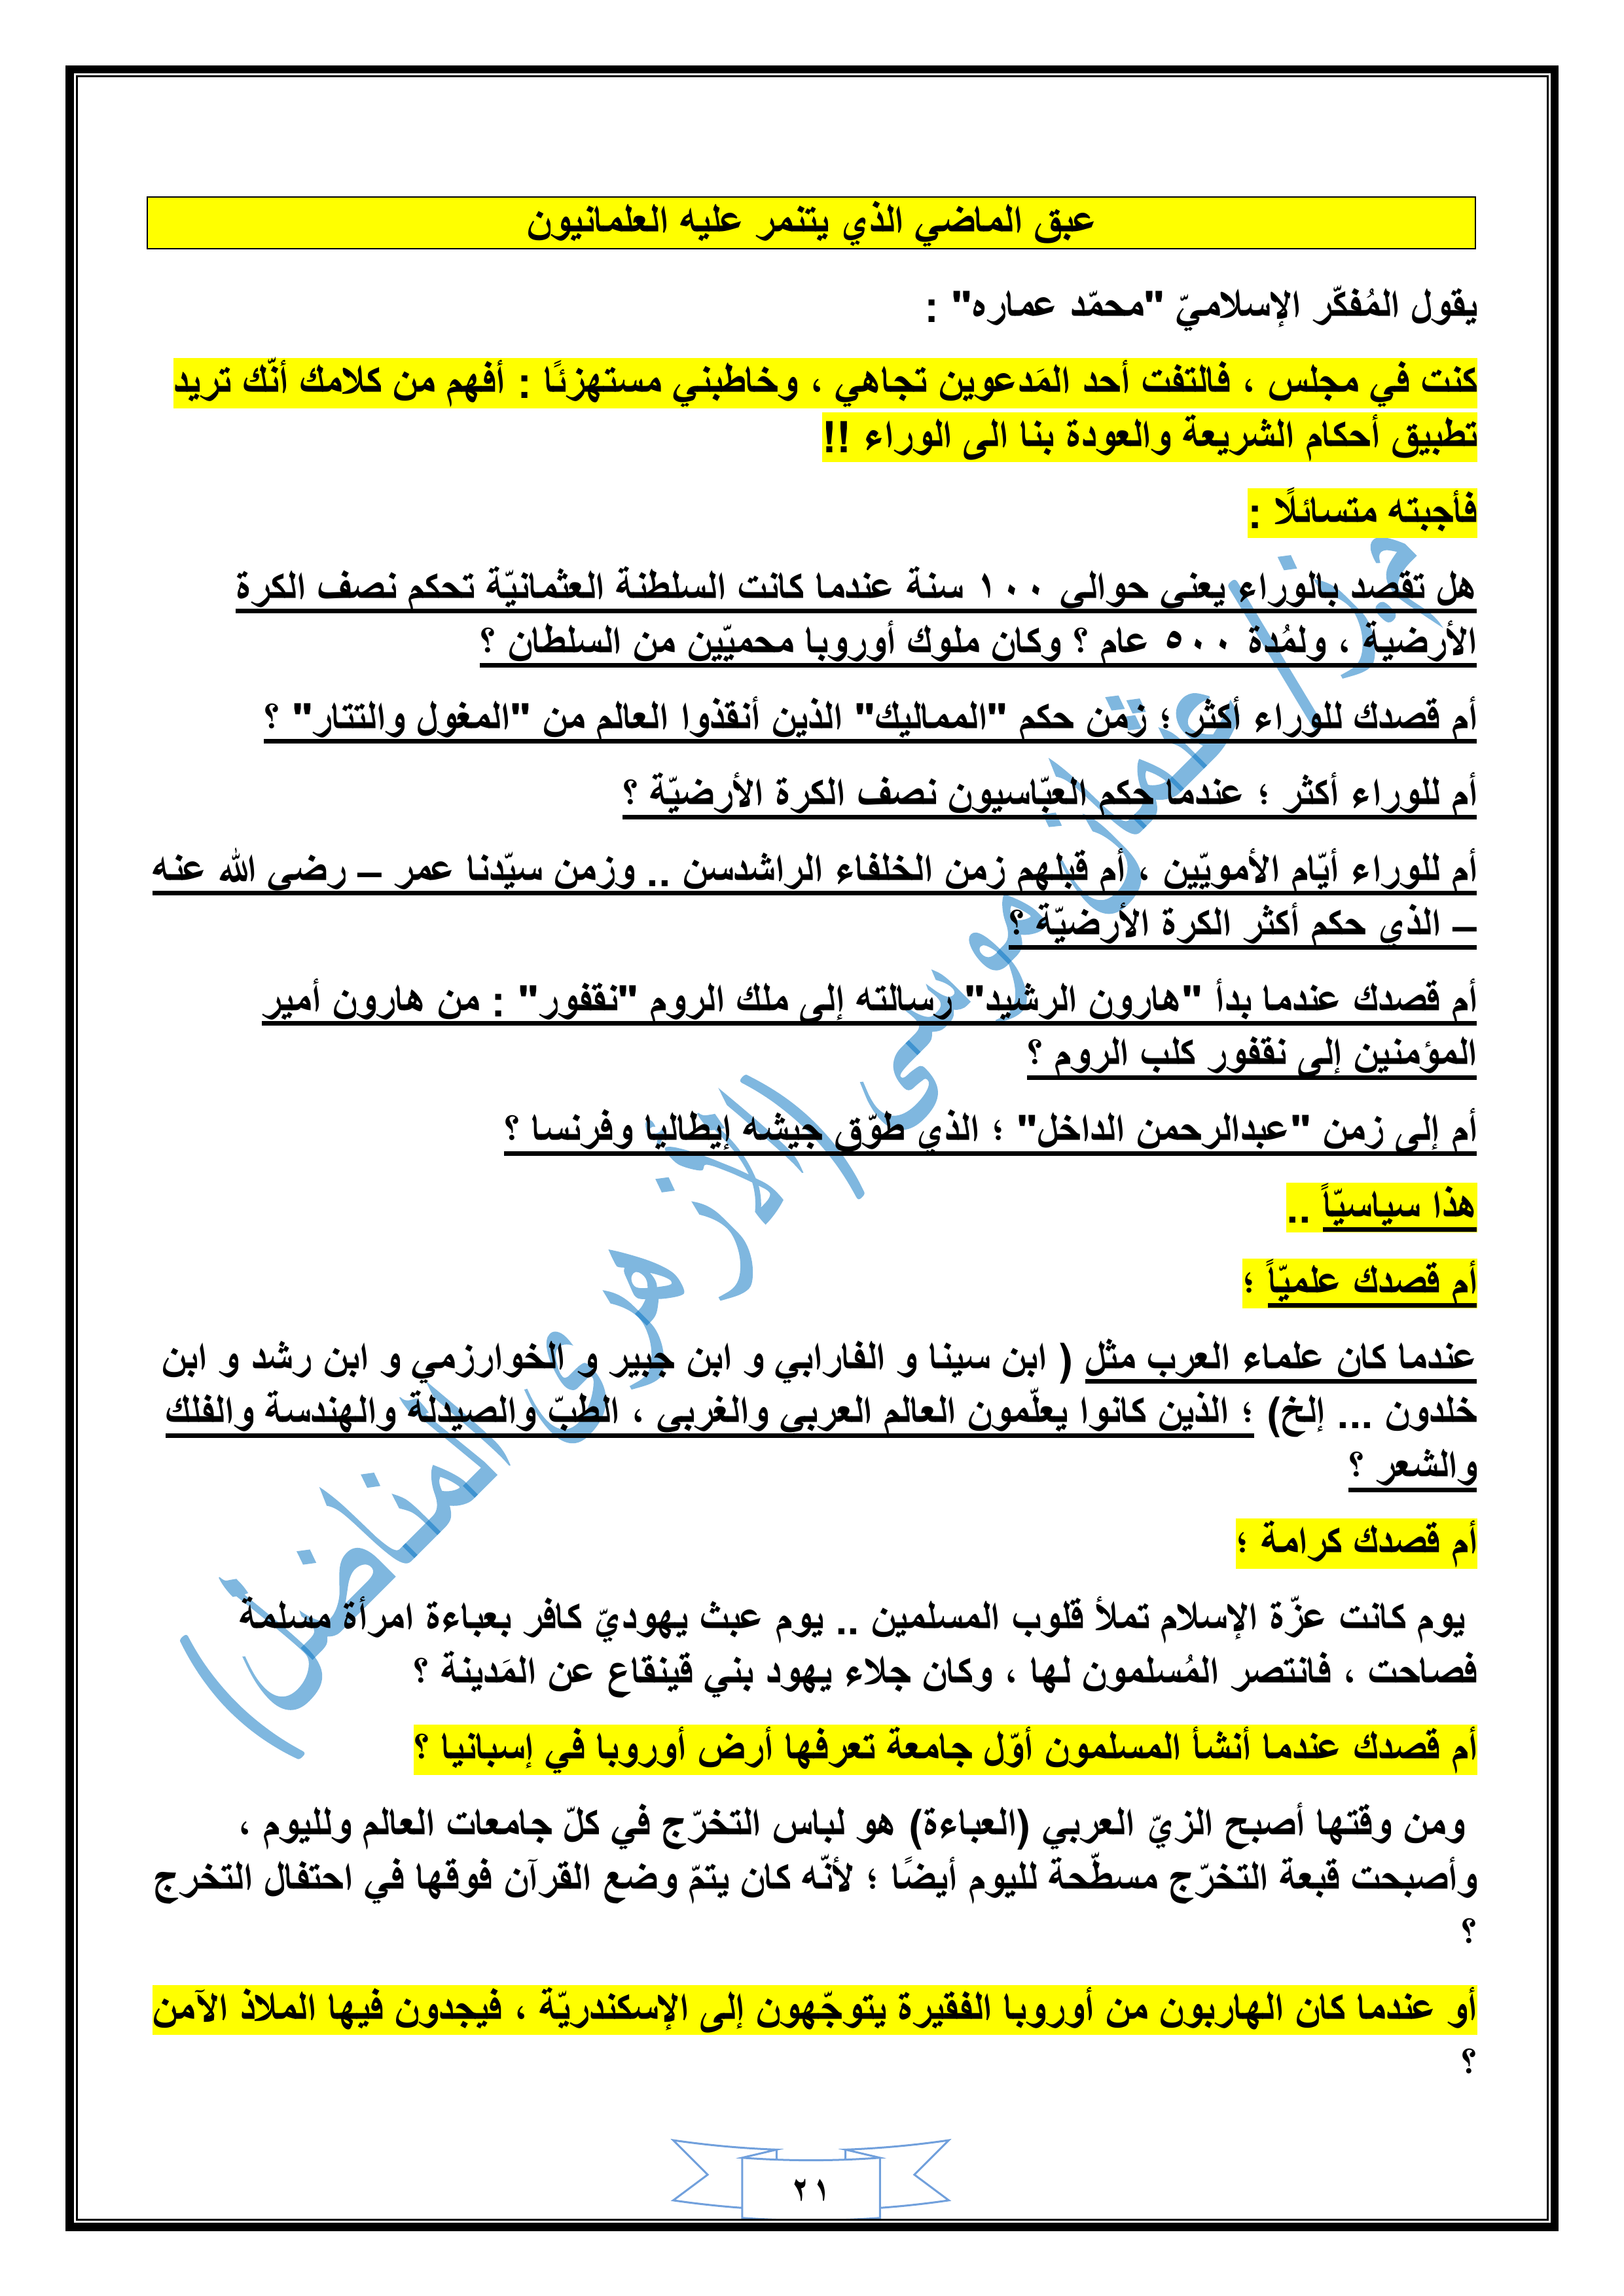 عبق الماضي الذي يتنمر عليه العلمانيون
يقول المُفكّر الإسلاميّ "محمّد عماره" :
كنت في مجلس ، فالتفت أحد المَدعوين تجاهي ، وخاطبني مستهزئًا : أفهم من كلامك أنّك تريد
تطبيق أحكام الشريعة والعودة بنا الى الوراء !!
فأجبته متسائلًا :
هل تقصد بالوراء يعني حوالي ١٠٠ سنة عندما كانت السلطنة العثمانيّة تحكم نصف الكرة
الأرضية ، ولمُدة ٥٠٠ عام ؟ وكان ملوك أوروبا محميّين من السلطان ؟
أم قصدك للوراء أكثر ؛ زمن حكم "المماليك" الذين أنقذوا العالم من "المغول والتتار" ؟
أم للوراء أكثر ؛ عندما حكم العبّاسيون نصف الكرة الأرضيّة ؟
أم للوراء أيّام الأمويّين ، أم قبلهم زمن الخلفاء الراشدسن .. وزمن سيّدنا عمر – رضي الله عنه
– الذي حكم أكثر الكرة الأرضيّة ؟
أم قصدك عندما بدأ "هارون الرشيد" رسالته إلى ملك الروم "نقفور" : من هارون أمير
المؤمنين إلى نقفور كلب الروم ؟
أم إلى زمن "عبدالرحمن الداخل" ؛ الذي طوّق جيشه إيطاليا وفرنسا ؟
هذا سياسيّاً ..
أم قصدك علميّاً ؛
عندما كان علماء العرب مثل ( ابن سينا و الفارابي و ابن جبير و الخوارزمي و ابن رشد و ابن
خلدون ... إلخ) ؛ الذين كانوا يعلّمون العالم العربي والغربي ، الطبّ والصيدلة والهندسة والفلك
والشعر ؟
أم قصدك كرامة ؛
يوم كانت عزّة الإسلام تملأ قلوب المسلمين .. يوم عبث يهوديّ كافر بعباءة امرأة مسلمة
فصاحت ، فانتصر المُسلمون لها ، وكان جلاء يهود بني قينقاع عن المَدينة ؟
أم قصدك عندما أنشأ المسلمون أوّل جامعة تعرفها أرض أوروبا في إسبانيا ؟
ومن وقتها أصبح الزيّ العربي (العباءة) هو لباس التخرّج في كلّ جامعات العالم ولليوم ،
وأصبحت قبعة التخرّج مسطّحة لليوم أيضًا ؛ لأنّه كان يتمّ وضع القرآن فوقها في احتفال التخرج
؟
أو عندما كان الهاربون من أوروبا الفقيرة يتوجّهون إلى الإسكندريّة ، فيجدون فيها الملاذ الآمن
؟
٢١
عثمان موسى (الأزهرى المناضل)